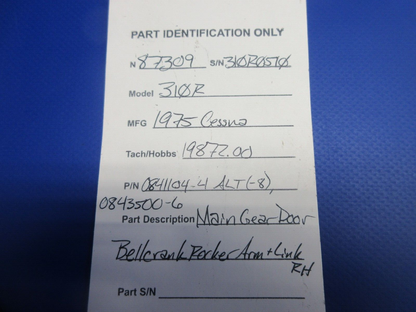 PART IDENTIFICATION ONLY
N 87309 S/N 310R0510
Model 310R
MFG 1975 Cessna
Tach/Hobbs 19872.00
P/N 0841104-4 ALT(-8),
0843500-6
Part Description Main Gear Door
Bellcrank Rocker Arm + Link
RH
Part S/N